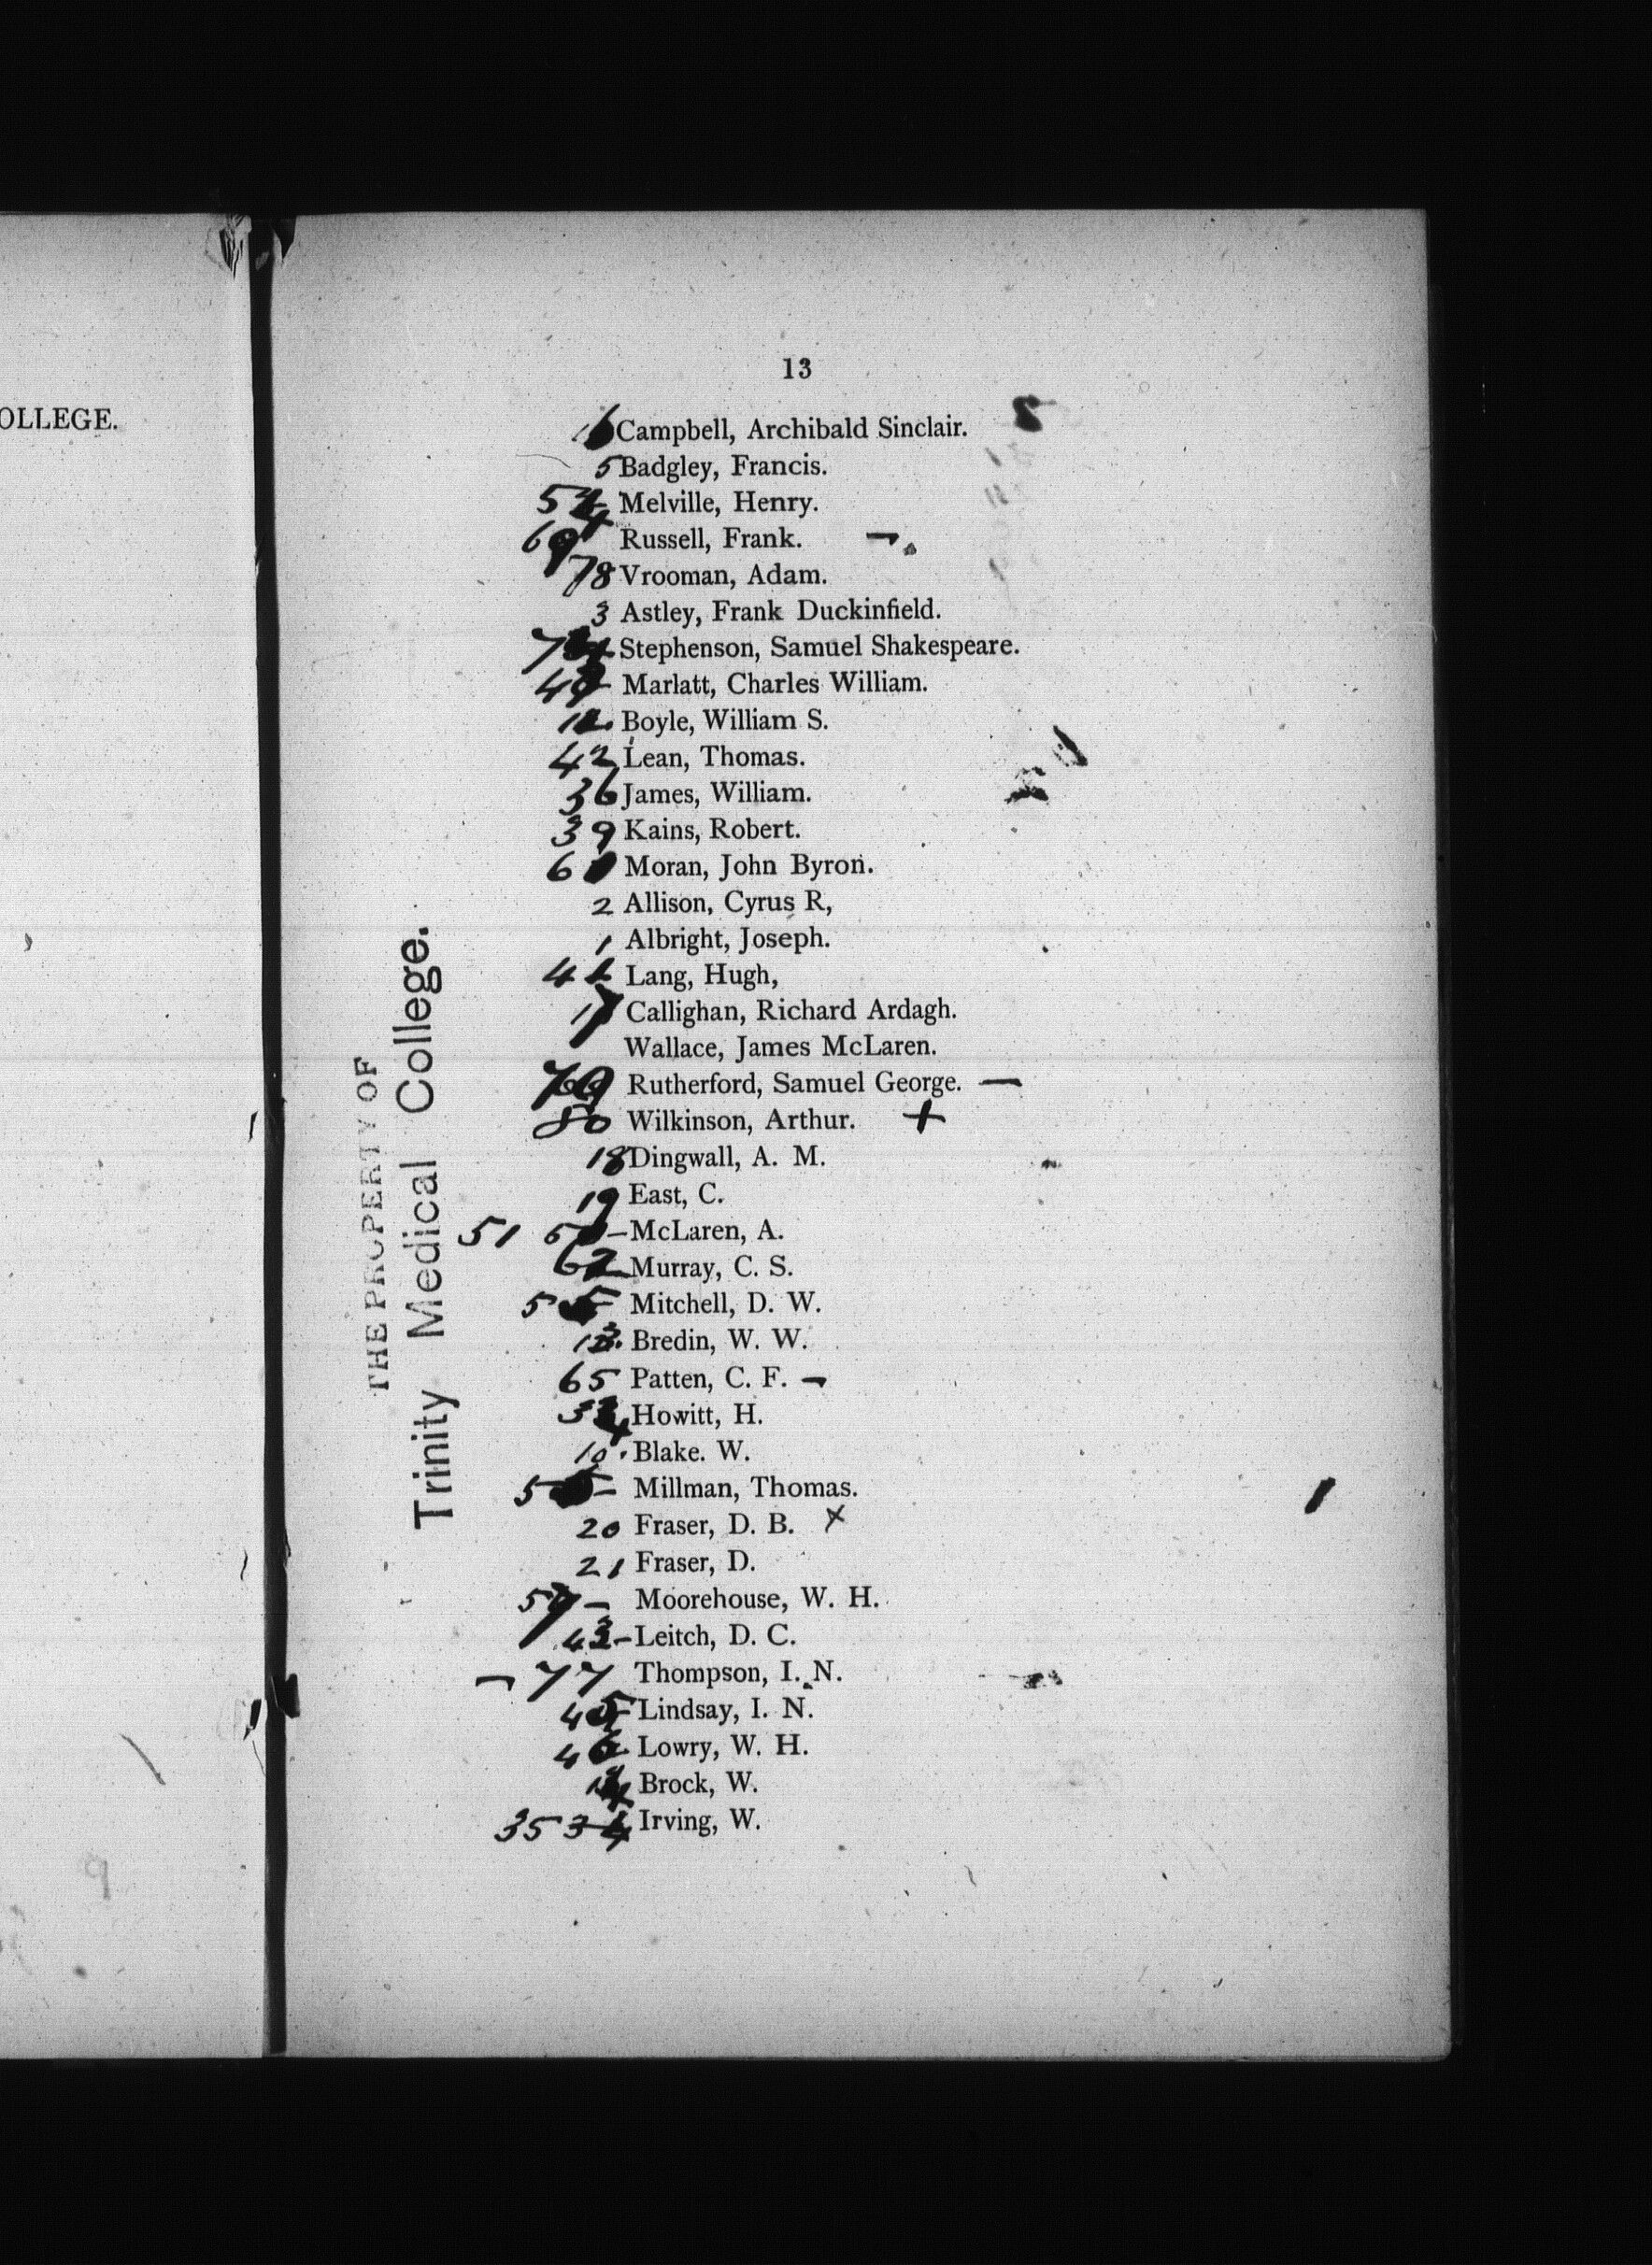 OLLEGE.
13
Campbell, Archibald Sinclair.
5 Badgley, Francis.
54 Melville, Henry.
69 Russell, Frank.
78 Vrooman, Adam.
3 Astley, Frank Duckinfield.
Stephenson, Samuel Shakespeare.
Marlatt, Charles William.
12. Boyle, William S.
42 Lean, Thomas.
36 James, William.
39 Kains, Robert.
Moran, John Byron.
2 Allison, Cyrus R,
1 Albright, Joseph.
44 Lang, Hugh,
17 Callighan, Richard Ardagh.
Wallace, James McLaren.
Rutherford, Samuel George. —
80 Wilkinson, Arthur. +
18 Dingwall, A. M.
19 East, C.
51 McLaren, A.
62 Murray, C. S.
Mitchell, D. W.
Bredin, W. W.
65 Patten, C. F. -
Howitt, H.
10 Blake. W.
Millman, Thomas.
20 Fraser, D. B. x
21 Fraser, D.
Moorehouse, W. H.
43 - Leitch, D. C.
- 77 Thompson, I. N.
45 Lindsay, I. N.
46 Lowry, W. H.
Brock, W.
35 Irving, W.
THE PROPERTY OF
Trinity Medical College.